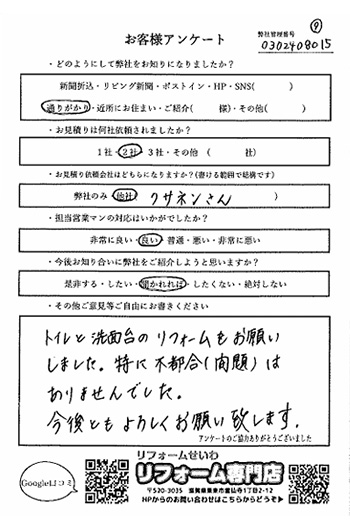 ⑨
お客様アンケート
弊社管理番号
0302408015
・どのようにして弊社をお知りになりましたか？
新聞折込・リビング新聞・ポストイン・HP・SNS(　　　)
通りがかり・近所にお住まい・ご紹介(　　　様)・その他(　　　)
・お見積りは何社依頼されましたか？
1社・2社・3社・その他　(　　　社)
・お見積り依頼会社はどちらになりますか？(書ける範囲で結構です)
弊社のみ　他社　クサネンさん　)
・担当営業マンの対応はいかがでしたか？
非常に良い・良い・普通・悪い・非常に悪い
・今後お知り合いに弊社をご紹介しようと思いますか？
是非する・したい・聞かれれば・したくない・絶対しない
・その他ご意見等ご自由にお書きください
トイレと洗面台のリフォームをお願い
しました。特に不都合(問題)は
ありませんでした。
今後ともよろしくお願い致します。
アンケートのご協力ありがとうございました
Google口コミ
リフォームせいわ
リフォーム専門店
〒520-3035 滋賀県栗東市霊仙寺1丁目2-12
HPからのお問い合わせはこちらからどうぞ▶